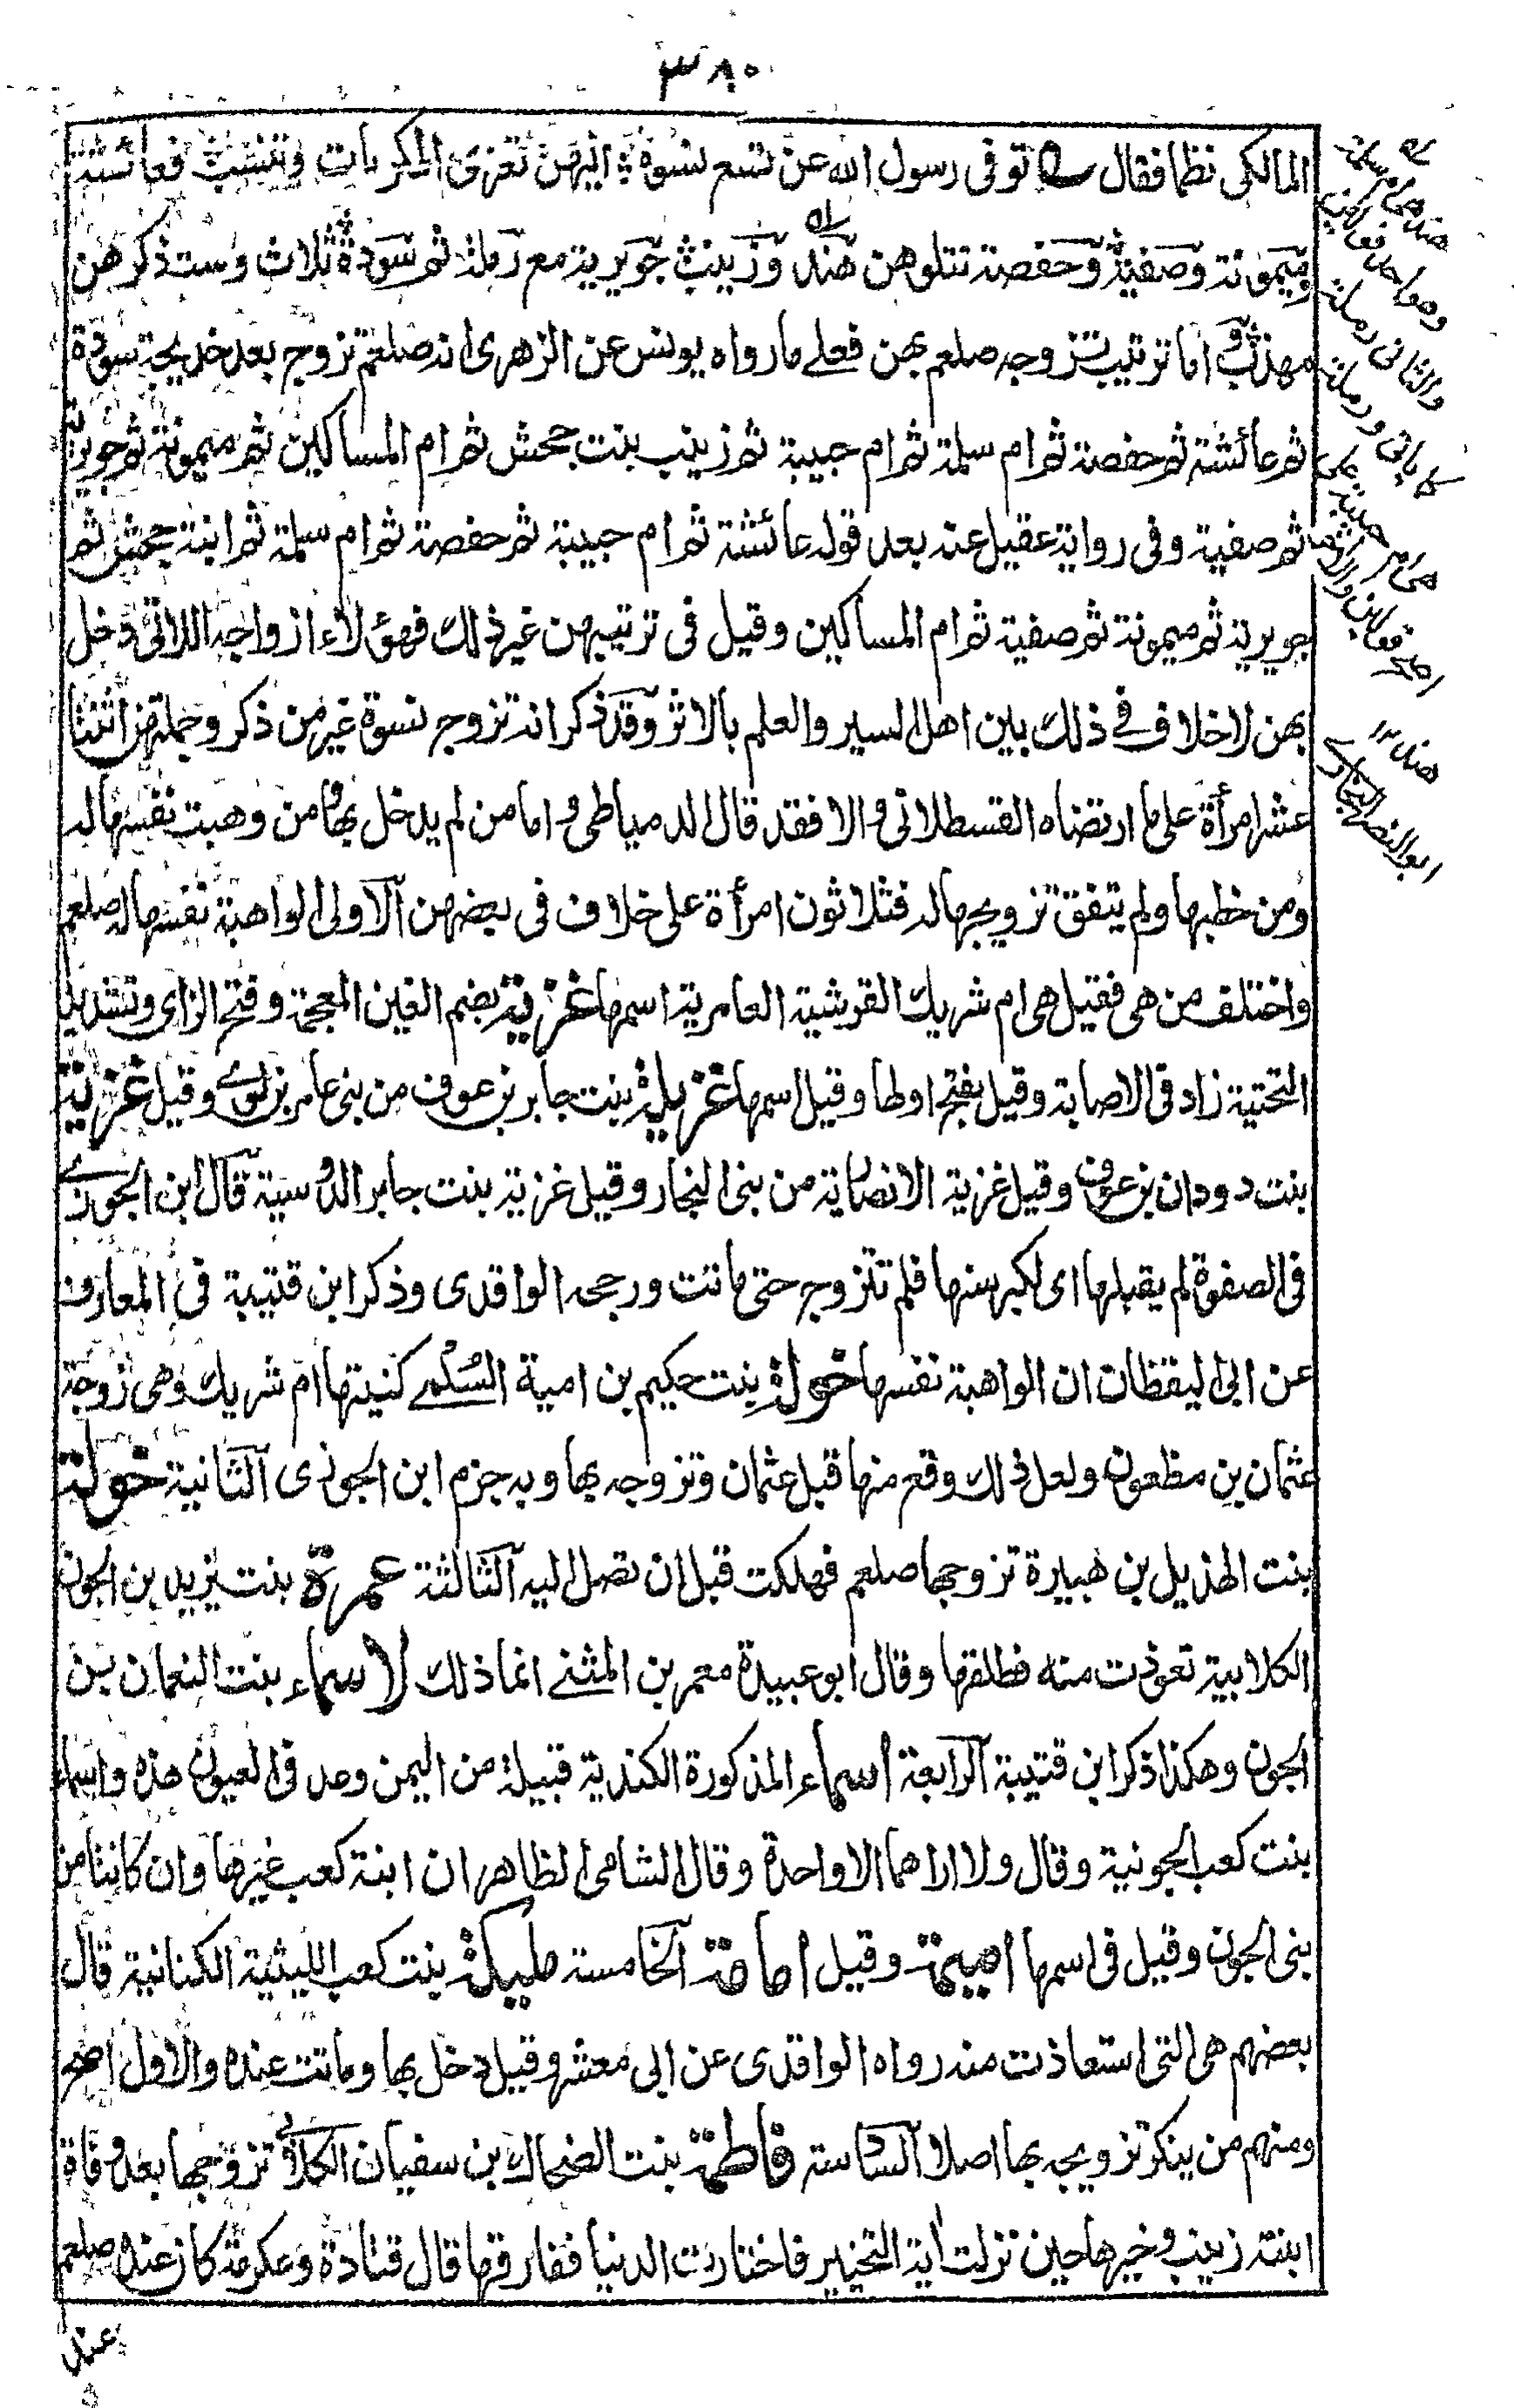 ٣٨٠
المالكى نظما فقال توفى رسول الله عن تسع نسوة اليهن تعزى المكرمات وتنسب فعائشة
وميمونة وصفية وحفصة تتلوهن هند وزينب جويرية مع رملة ثم سودة ثلاث وست ذكرهن
مهذب و اما ترتيب تزوجه صلعم بهن فعلى ما رواه يونس عن الزهرى انه صلعم تزوج بعد خديجة سودة
ثم عائشة ثم حفصة ثم ام سلمة ثم ام حبيبة ثم زينب بنت جحش ثم ام المساكين ثم ميمونة ثم جويرية
ثم صفية وفى رواية عقيل عنه بعد قوله عائشة ثم ام حبيبة ثم حفصة ثم ام سلمة ثم ابنة جحش ثم
جويرية ثم ميمونة ثم صفية ثم ام المساكين وقيل فى ترتيبهن غير ذلك فهؤلاء ازواجه اللاتى دخل
بهن لا خلاف فى ذلك بين اهل السير والعلم بالاثر وقد ذكر انه تزوج نسوة غير من ذكر وجملتهن اثنتا
عشر امرأة على ما ارتضاه القسطلانى والا فقد قال الدمياطى و اما من لم يدخل بها ومن وهبت نفسها له
ومن خطبها ولم يتفق تزويجها له فثلاثون امرأة على خلاف فى بعضهن الاولى الواهبة نفسها له صلعم
واختلف من هى فقيل هى ام شريك القرشية العامرية اسمها غزية بضم الغين المعجمة وفتح الزاى وتشديد
التحتية زاد فى الاصابة وقيل بفتح اولها وقيل اسمها غزيلة بنت جابر بن عوف من بنى عامر بن لوى وقيل غزية
بنت دودان بن عوف وقيل غزية الانصارية من بنى النجار وقيل غزية بنت جابر الدوسية قال ابن الجوزى
فى الصفوة لم يقبلها اى لكبر سنها فلم تتزوج حتى ماتت ورجحه الواقدى وذكر ابن قتيبة فى المعارف
عن ابى اليقظان ان الواهبة نفسها خولة بنت حكيم بن امية السلمى كنيتها ام شريك وهى زوجة
عثمان بن مظعون ولعل ذلك وقع منها قبل عثمان وتزوجه بها وبه جزم ابن الجوزى الثانية خولة
بنت الهذيل بن هبيرة تزوجها صلعم فهلكت قبل ان تصل اليه الثالثة عمرة بنت يزيد بن الجون
الكلابية تعوذت منه فطلقها وقال ابو عبيدة معمر بن المثنى انما ذلك لاسماء بنت النعمان بن
الجون وهكذا ذكر ابن قتيبة الرابعة اسماء المذكورة الكندية قبيلة من اليمن وعد فى العيون هذه واسماء
بنت كعب الجونية وقال ولا اراهما الا واحدة وقال الشامى الظاهر ان ابنة كعب غيرها وان كانتا من
بنى الجون وقيل فى اسمها اميمة وقيل امامة الخامسة مليكة بنت كعب الليثية الكنانية قال
بعضهم هى التى استعاذت منه رواه الواقدى عن ابى معشر وقيل دخل بها وماتت عنده والاول اصح
ومنهم من ينكر تزويجه بها اصلا السادسة فاطمة بنت الضحاك بن سفيان الكلابى تزوجها بعد وفاة
ابنته زينب وخيرها حين نزلت اية التخيير فاختارت الدنيا ففارقها قال قتادة وعكرمة كان عنده صلعم
عند
هند هى ام سلمة
والثانى رملة
هند ١٢
ابو النصر البخارى